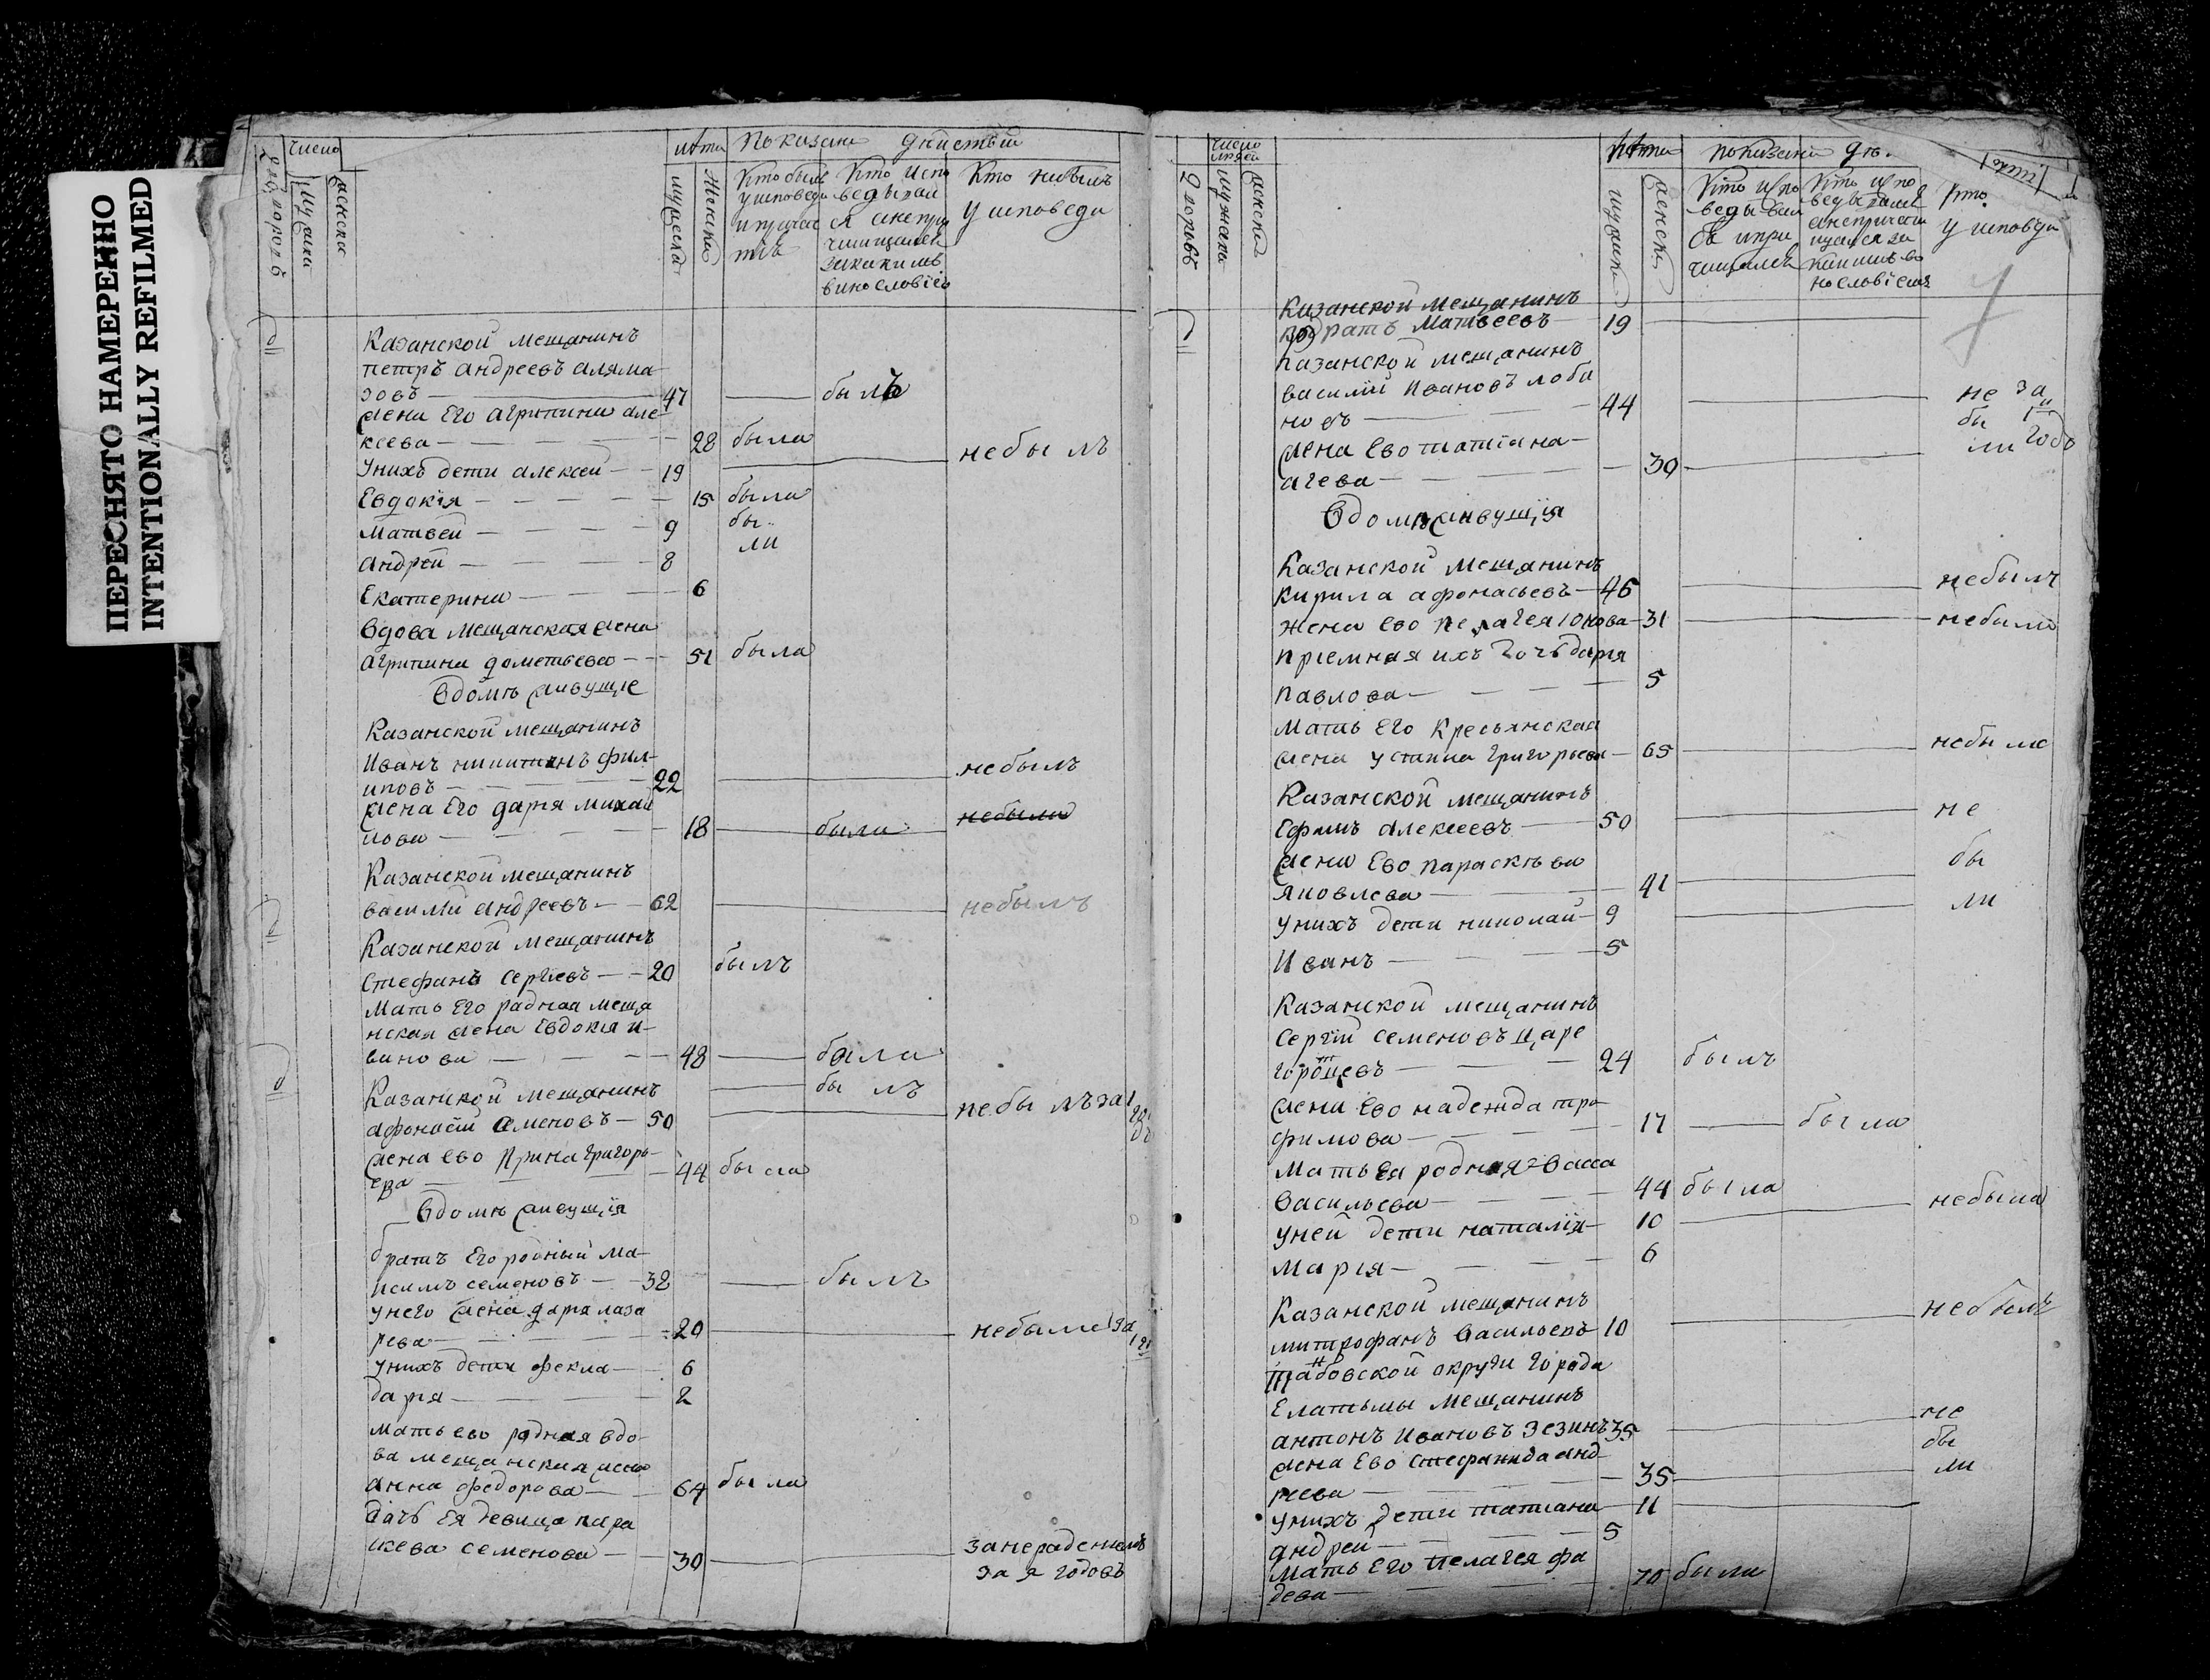 ПЕРЕСНЯТО НАМЕРЕННО
INTENTIONALLY REFILMED
число
лѣта
показание дѣйствъ
мужска
женска
Кто былъ у исповеди и причас
Кто испо
ведывал
ся а не при
чащался
за каким
винословіем
Кто небылъ
у исповеди
Казанской мещанинъ
петръ андреевъ аляма
зовъ 47 былъ
жена Его агрипина але
ксеева 28 была
Унихъ дети алексеи 19 небылъ
Евдокїя 15 была
Матвеи 9 бы
ли
андреи 8
Екатерина 6
Вдова мещанская жена
агрипина дометьева 51 была
Вдомѣ живущіе
Казанской мещанинъ
Иванъ никитинъ фил
иповъ 22 небылъ
жена Его дарья михаи
лова 18 была небыла
Казанской мещанинъ
василий андреевъ 62 небылъ
Казанской мещанинъ
Стефанъ Сергѣевъ 20 былъ
Мать Его радная меща
нская жена Евдокія и
ванова 48 была
Казанской мещанинъ бы лъ
афонасїй Семеновъ 50 небы лъ за 1
жена Ево Ирина григорь
ева 44 была
Вдомѣ живущїя
братъ Его родный Ма
ксимъ семеновъ 32 былъ
унего жена дарья лаза
рева 20 небыла за
унихъ дети фекла 6
дарья 2
мать ево радная вдо
ва мещанская жена
анна федорова 64 была
дачь Ея девица пара
скева семенова 30 занераденiемъ
за я годовъ
число
людей
дворовъ
мужска
женска
лѣта
показание дѣ.
мужска
женска
Кто испо
веды вал
ся и при
чащался
Кто испо
ведывалс
а не причаст
ищался за
каким ви
нословїемъ
Кто
у исповеди
Казанской мещанинъ
Кодратъ Матвеевъ 19
Казанской мещанинъ
василїй Ивановъ лоба
новъ 44 не за
бы
ли годо
жена Ево татїана
агева 30
Вдомѣ живущїя
Казанской мещанинъ
Кирила афонасьевъ 46 небылъ
жена ево пелагея Іонова 31 небыла
Приемная ихъ дочь дарья
павлова 5
Мать Его Кресьянская
жена устинна григорьева 65 небыла
Казанской мещанинъ
Ефимъ алексеевъ 50 не
жена Ево параскѣва бы
яковлева 41
унихъ дети николай 9 ли
Иванъ 5
Казанской мещанинъ
Сергїй семеновъ царе
городцевъ 24 былъ
жена Ево надежда тра
фимова 17 была
Мать Ея родная васса
Васильева 44 была
уней дети наталїя 10 небыла
Марїя 6
Казанской мещанинъ
митрофанъ васильевъ 10 небылъ
танбовской округи города
Елатьмы мещанинъ
антонъ Ивановъ Зезинъ 35 не
жена Ево Стефанида анд бы
реева 35 ли
унихъ дети татиана 11
андреи 5
Мать Его пелагея фа
деева 70 была